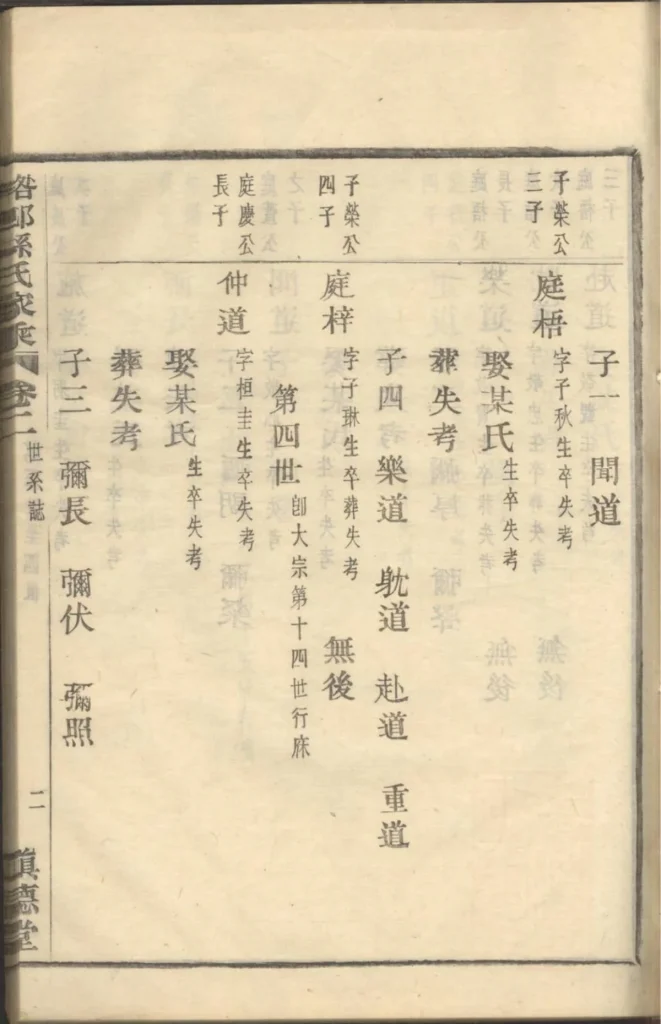 子一 聞道
子榮公
三子
庭梧 字子秋生卒失考
娶某氏 生卒失考
葬失考
子四 樂道 躭道 赴道 重道
子榮公
四子
庭梓 字子琳生卒葬失考 無後
第四世 卽大宗第十四世行庥
庭慶公
長子
仲道 字桓圭生卒失考
娶某氏 生卒失考
葬失考
子三 彌長 彌伏 彌照
邱孫氏家乘 卷二 世系誌 二 德堂